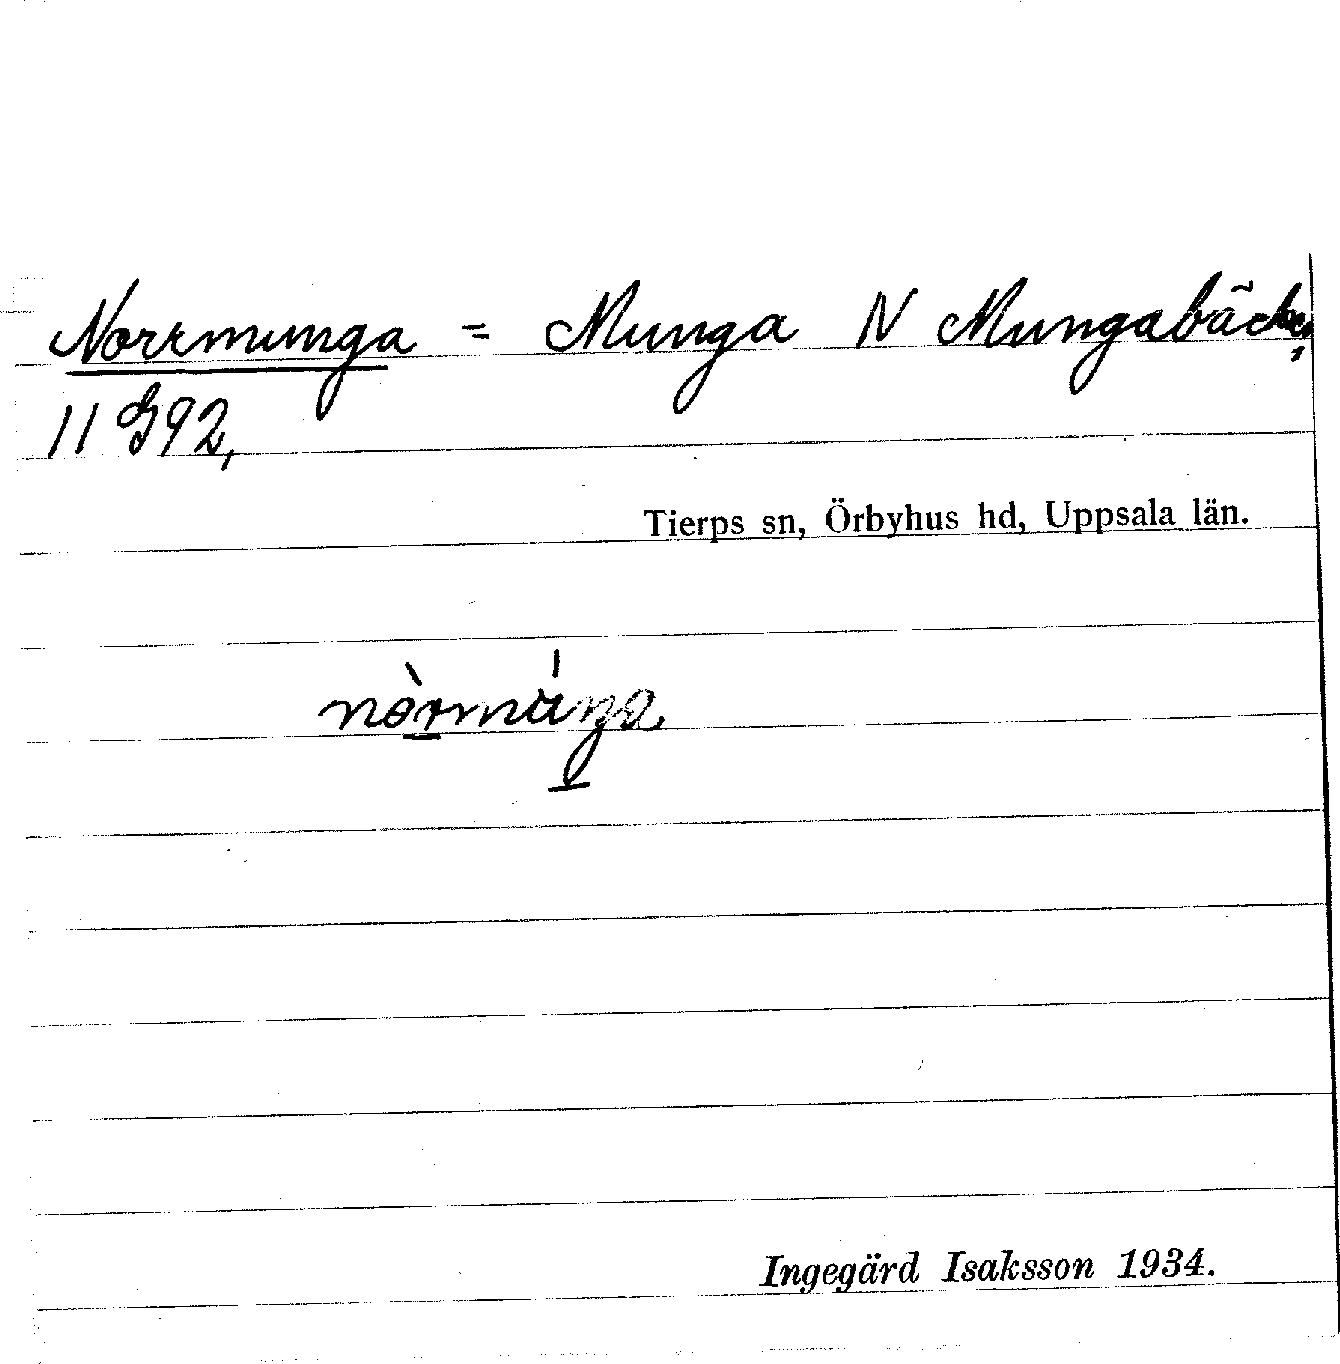 Norrmunga = Munga N Mungabäcken,
11 G92,
Tierps sn, Örbyhus hd, Uppsala län.
Ingegärd Isaksson 1934.